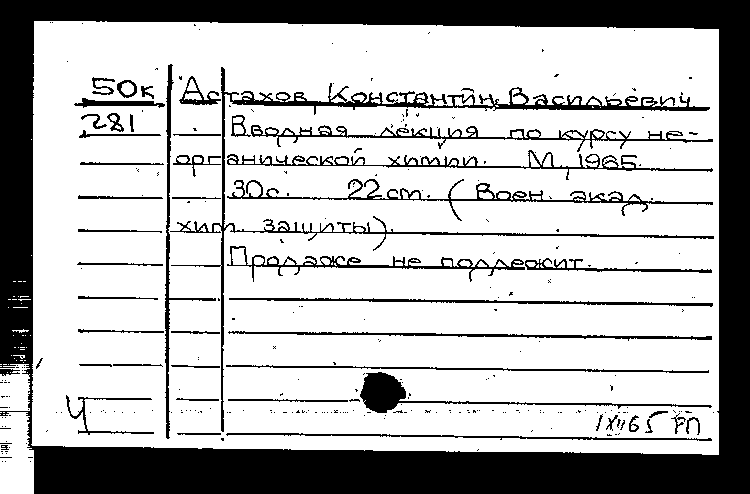 50к Астахов, Константин Васильевич
281 Вводная лекция по курсу не-
органической химии. М, 1965.
30с. 22cm. (Воен. акад.
хим. защиты).
Продаже не подлежит.
Ч
РП